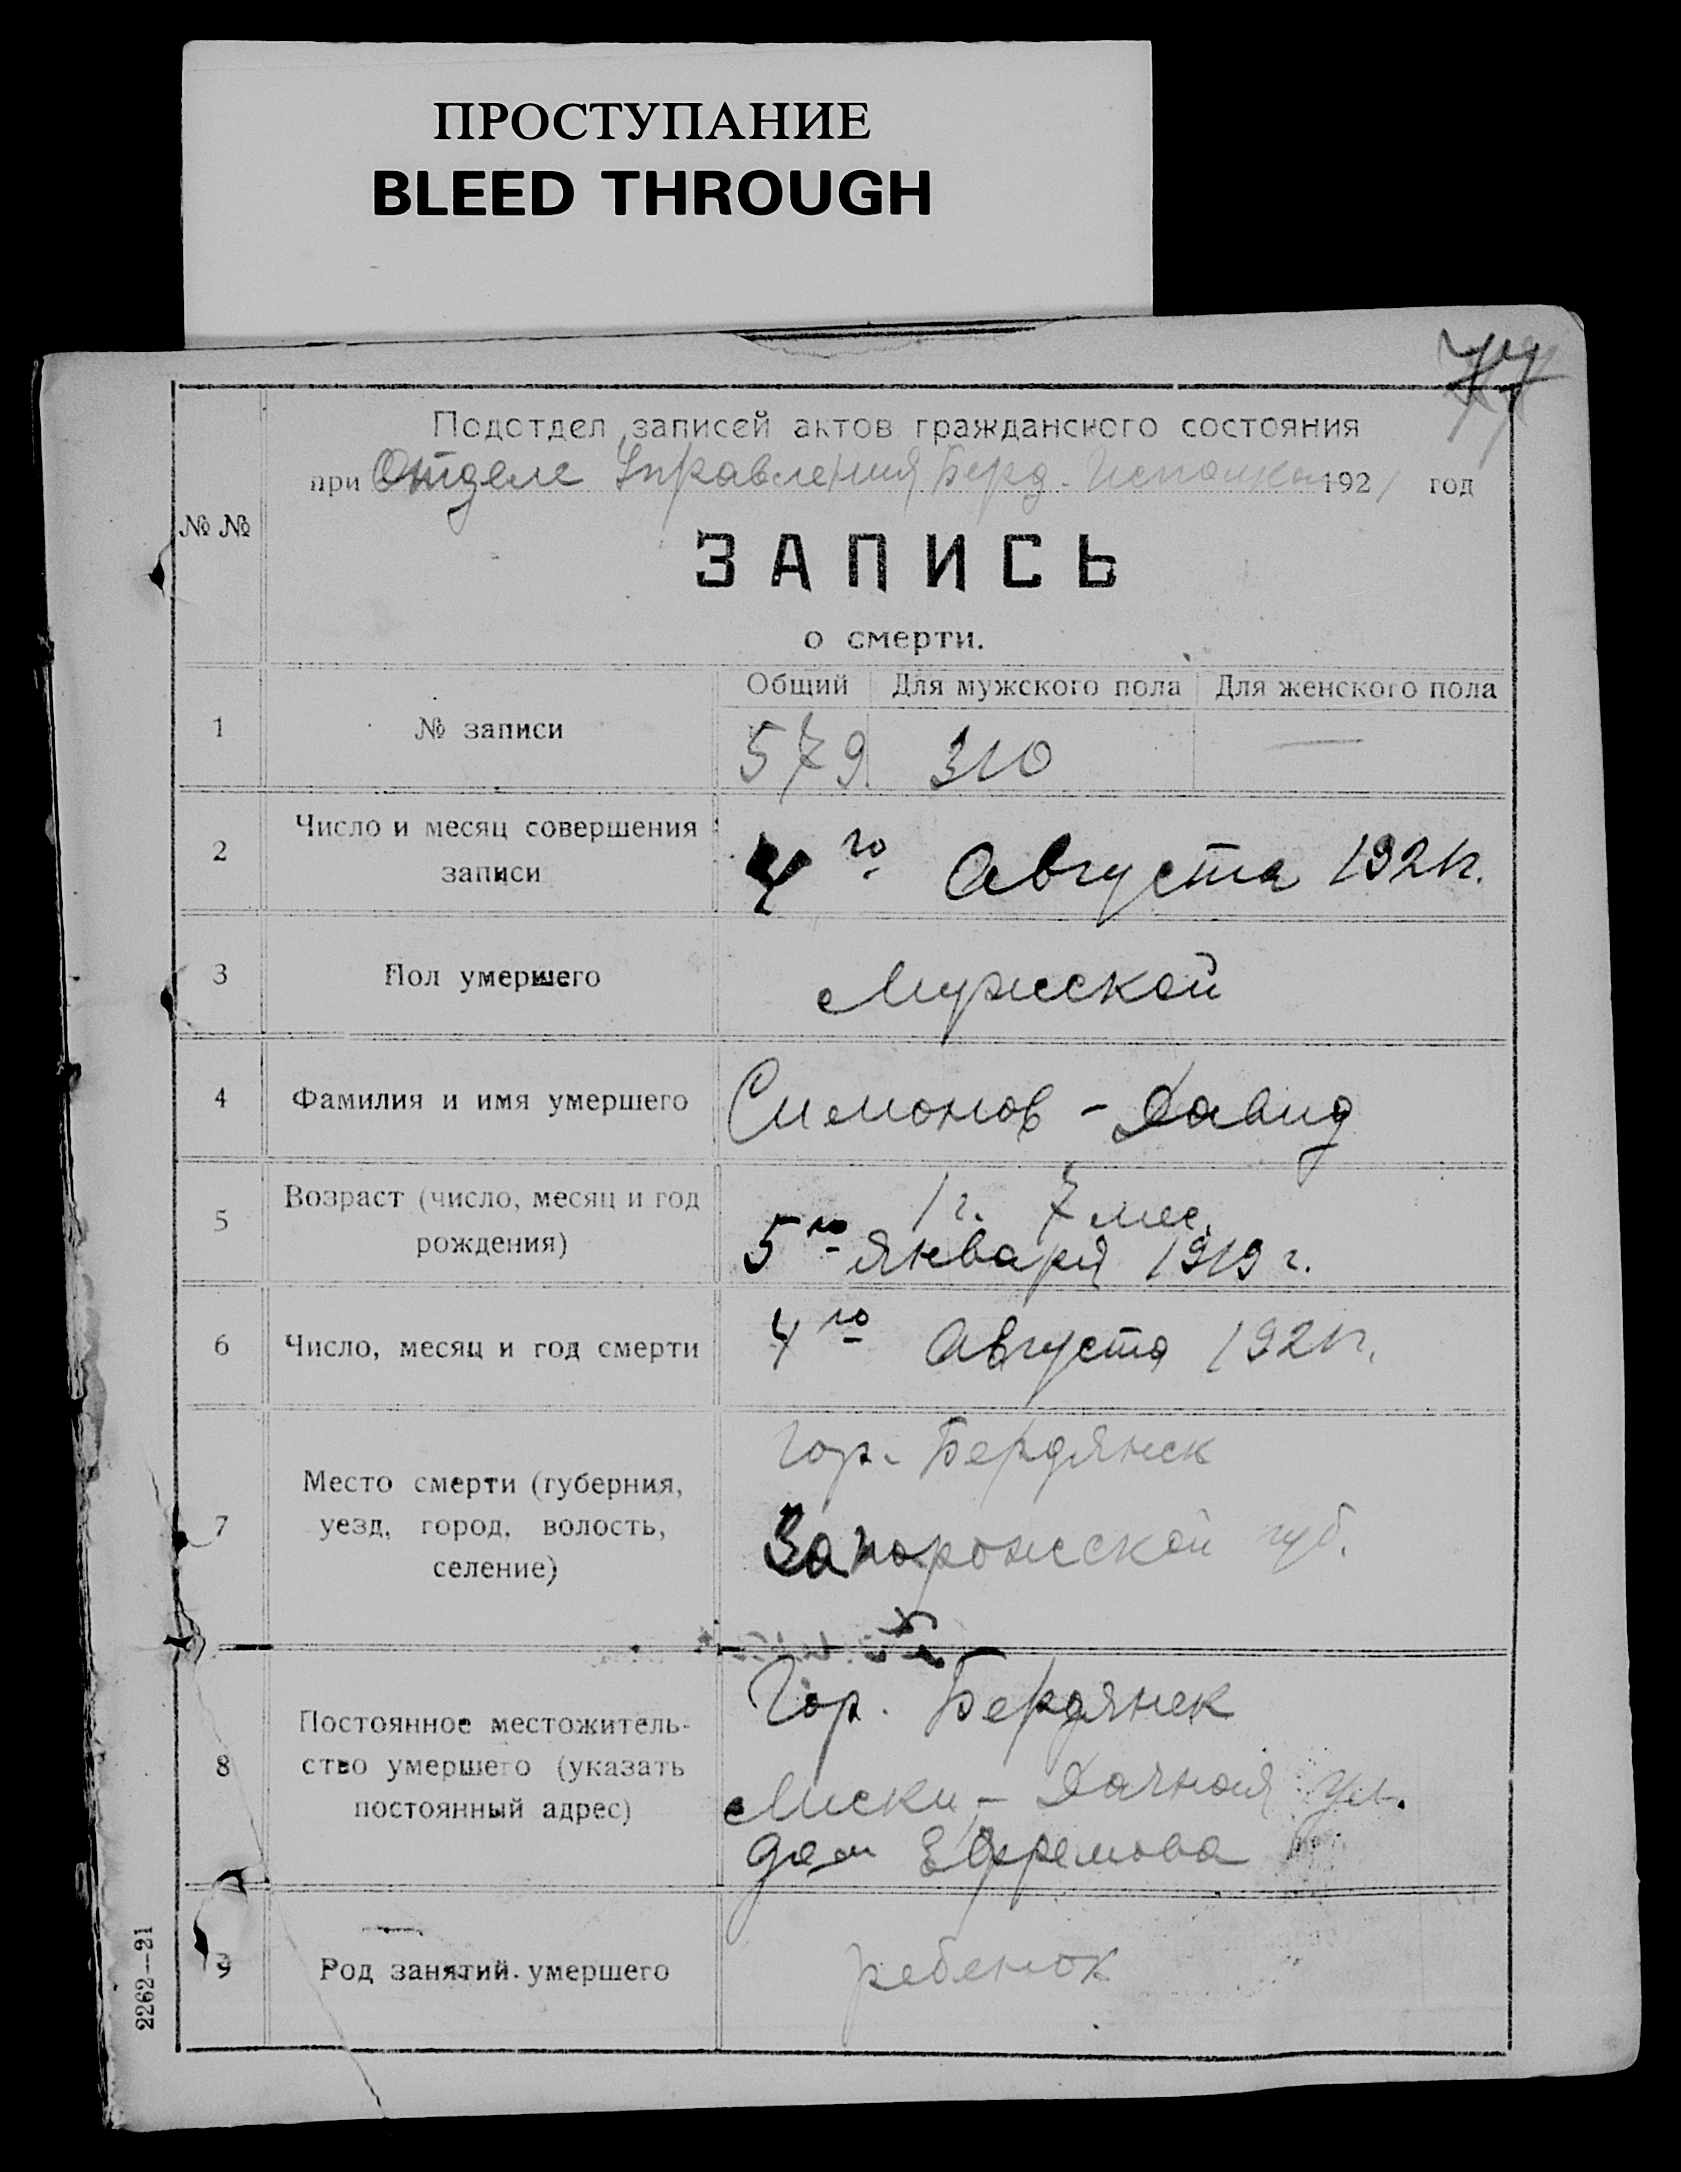 ПРОСТУПАНИЕ
BLEED THROUGH
77
Подотдел записей актов гражданского состояния
при Отделе Управления Берд. Исполкома 1921 год
№ №
ЗАПИСЬ
о смерти.
Общий Для мужского пола Для женского пола
1 № записи 579 310 —
2 Число и месяц совершения
записи
4го Августа 1921г.
3 Пол умершего Мужской
4 Фамилия и имя умершего Симонов - Давид
5 Возраст (число, месяц и год
рождения)
1 г. 7 мес.
5го Января 1919 г.
6 Число, месяц и год смерти 4го Августа 1921г.
7 Место смерти (губерния,
уезд, город, волость,
селение)
Гор. Бердянск
Запорожской губ.
8 Постоянное местожитель-
ство умершего (указать
постоянный адрес)
Гор. Бердянск
Лиски - Дачная ул.
дом Ефремова
9 Род занятий умершего ребенок
2262—21